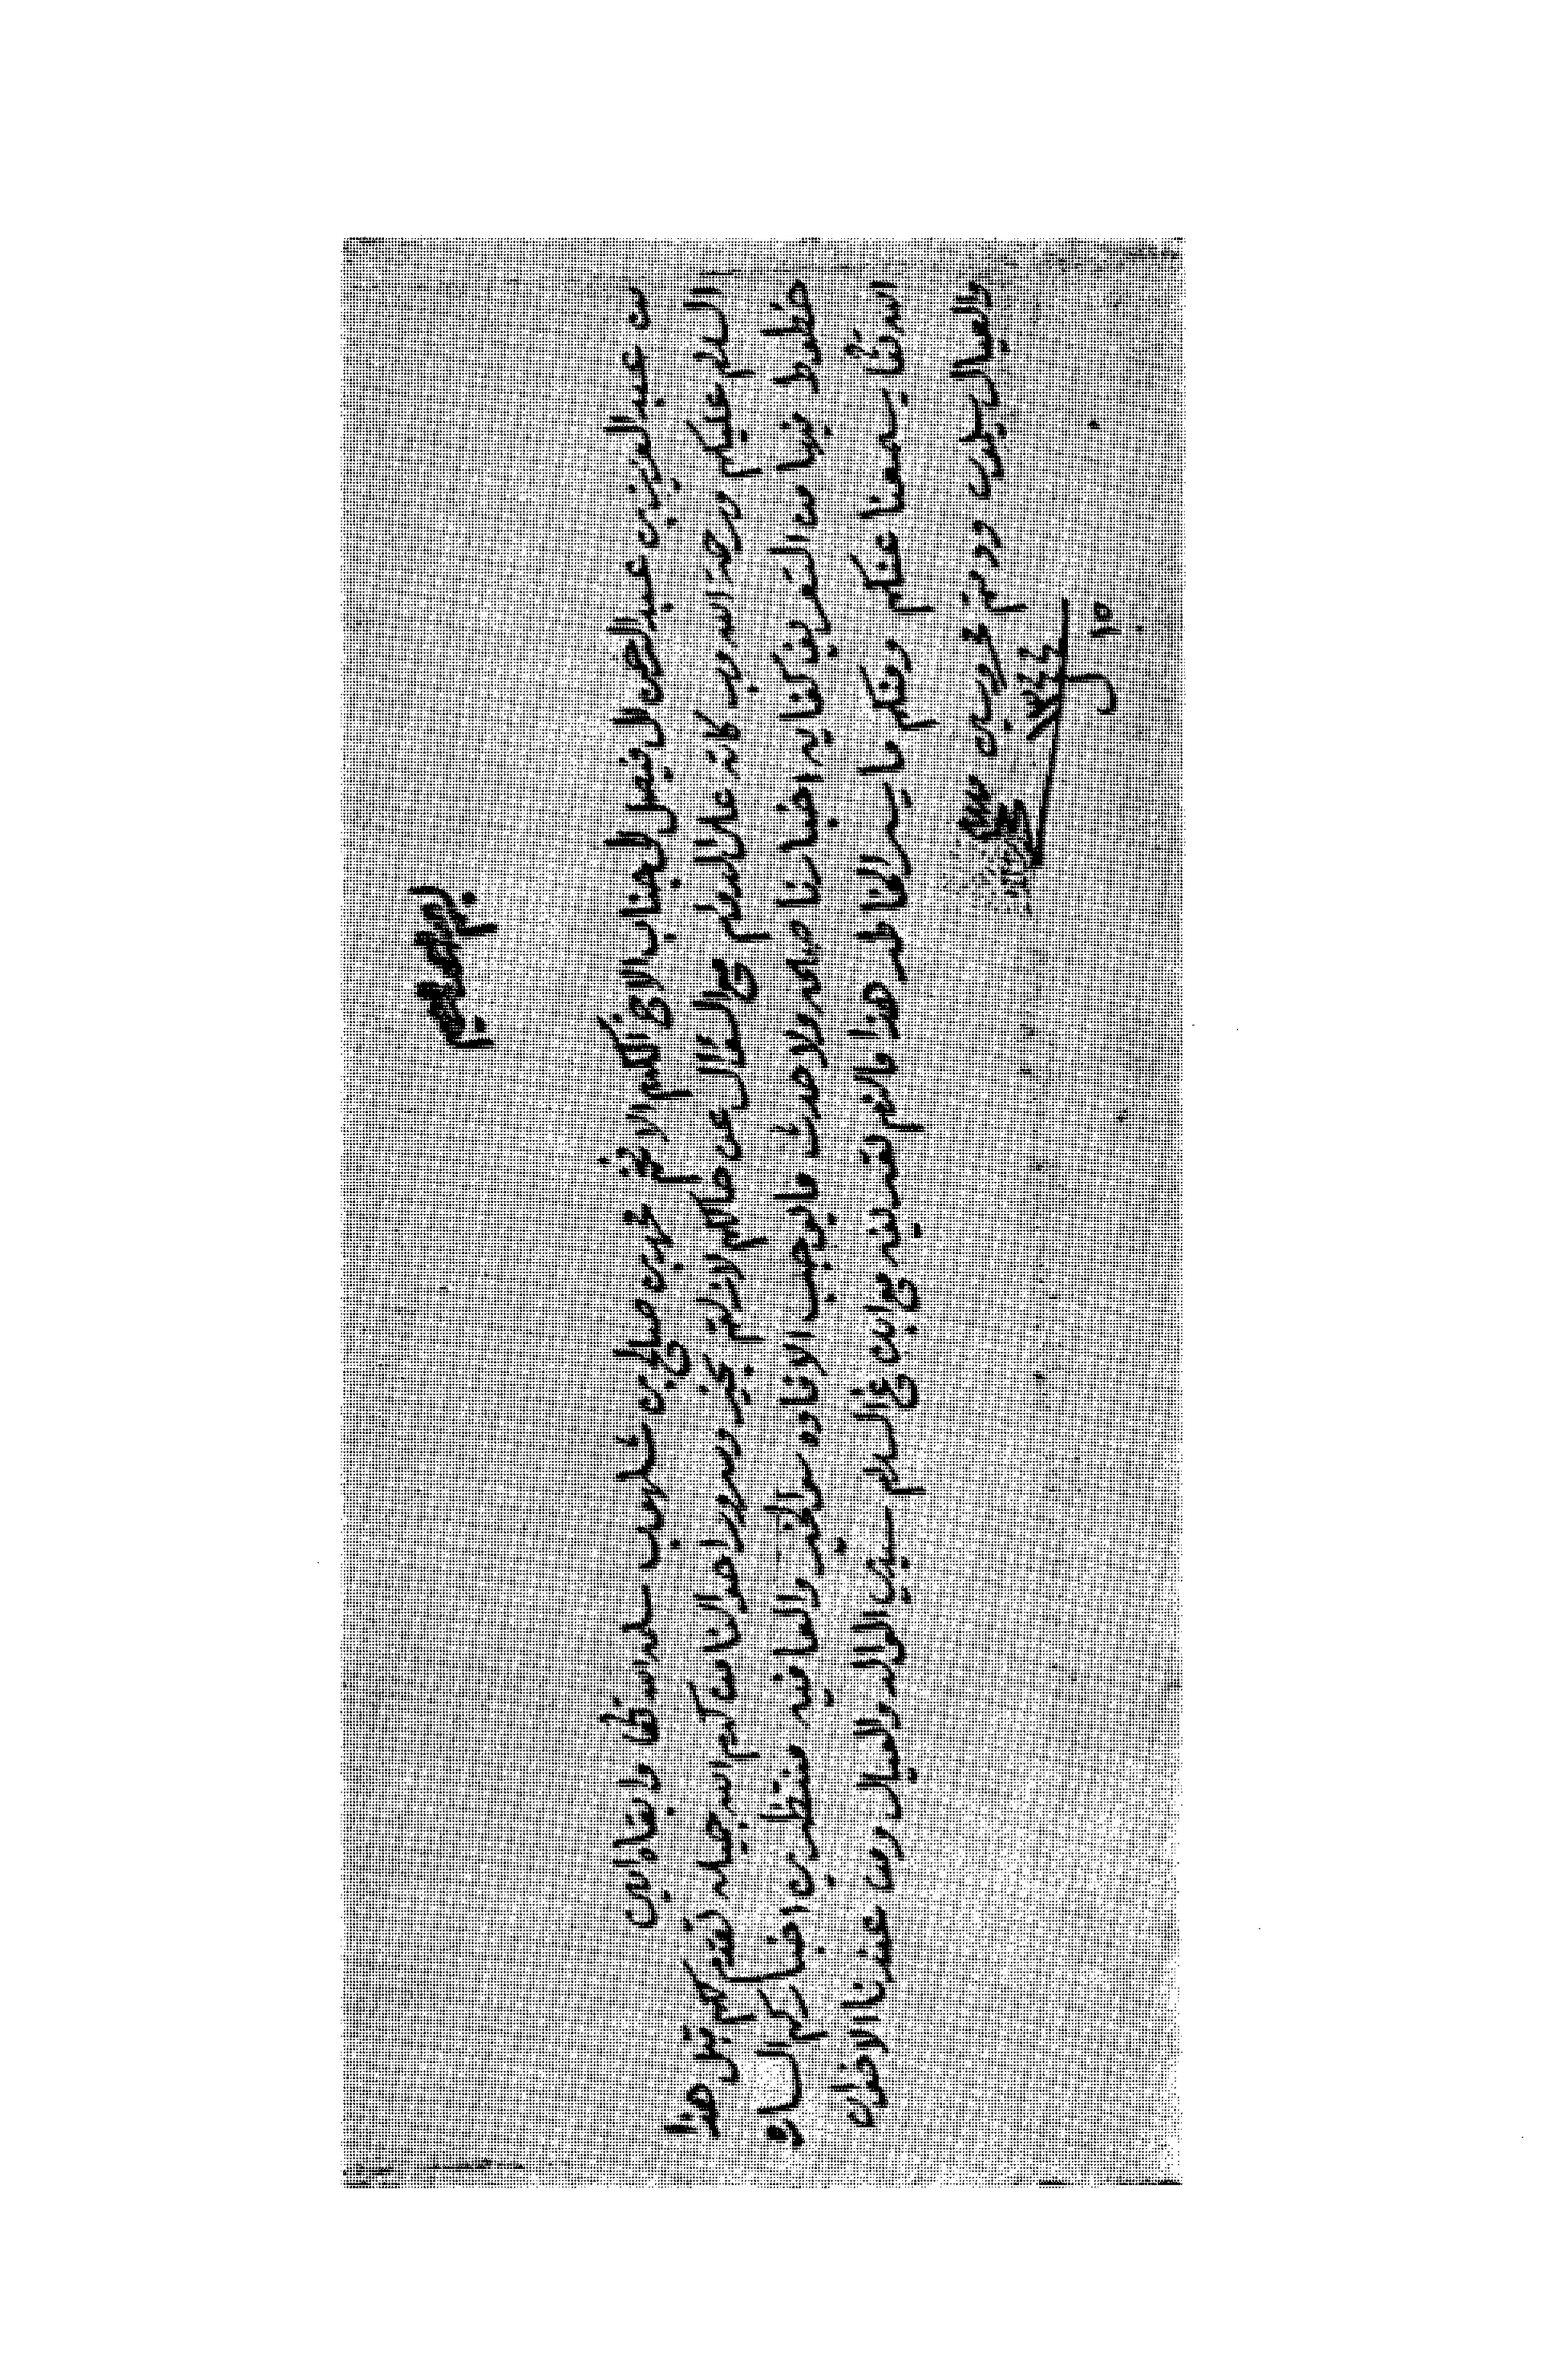 بسم الله الرحمن الرحيم
من عبد العزيز بن عبد الرحمن ال فيصل الى جناب الاخ المكرم الافخم محمد بن صالح بن شلهوب سلمه الله تعا وابقاه امين
السلام عليكم ورحمة الله وبركاته على الدوام مع السؤال عن حالكم لازلتم بخير وسرور احوالنا من كرم الله جميله تقدم لكم قبل هذا
خطوط فيها من التعريف كفايه اخبارنا صالحه ولا حدث ما يوجب الافاده سوى الخير والعافيه منتظرين اخباركم الساره
الله تعا يسمعنا عنكم ومنكم ما يسر الخاطر هذا مالزم تعريفه مع ابلاغ السلام سيدي الوالد والعيال ومن عندنا الاخوان
والعيال يسلمون ودمتم محروسين والسلام
١٥ ل ١٣٤٤